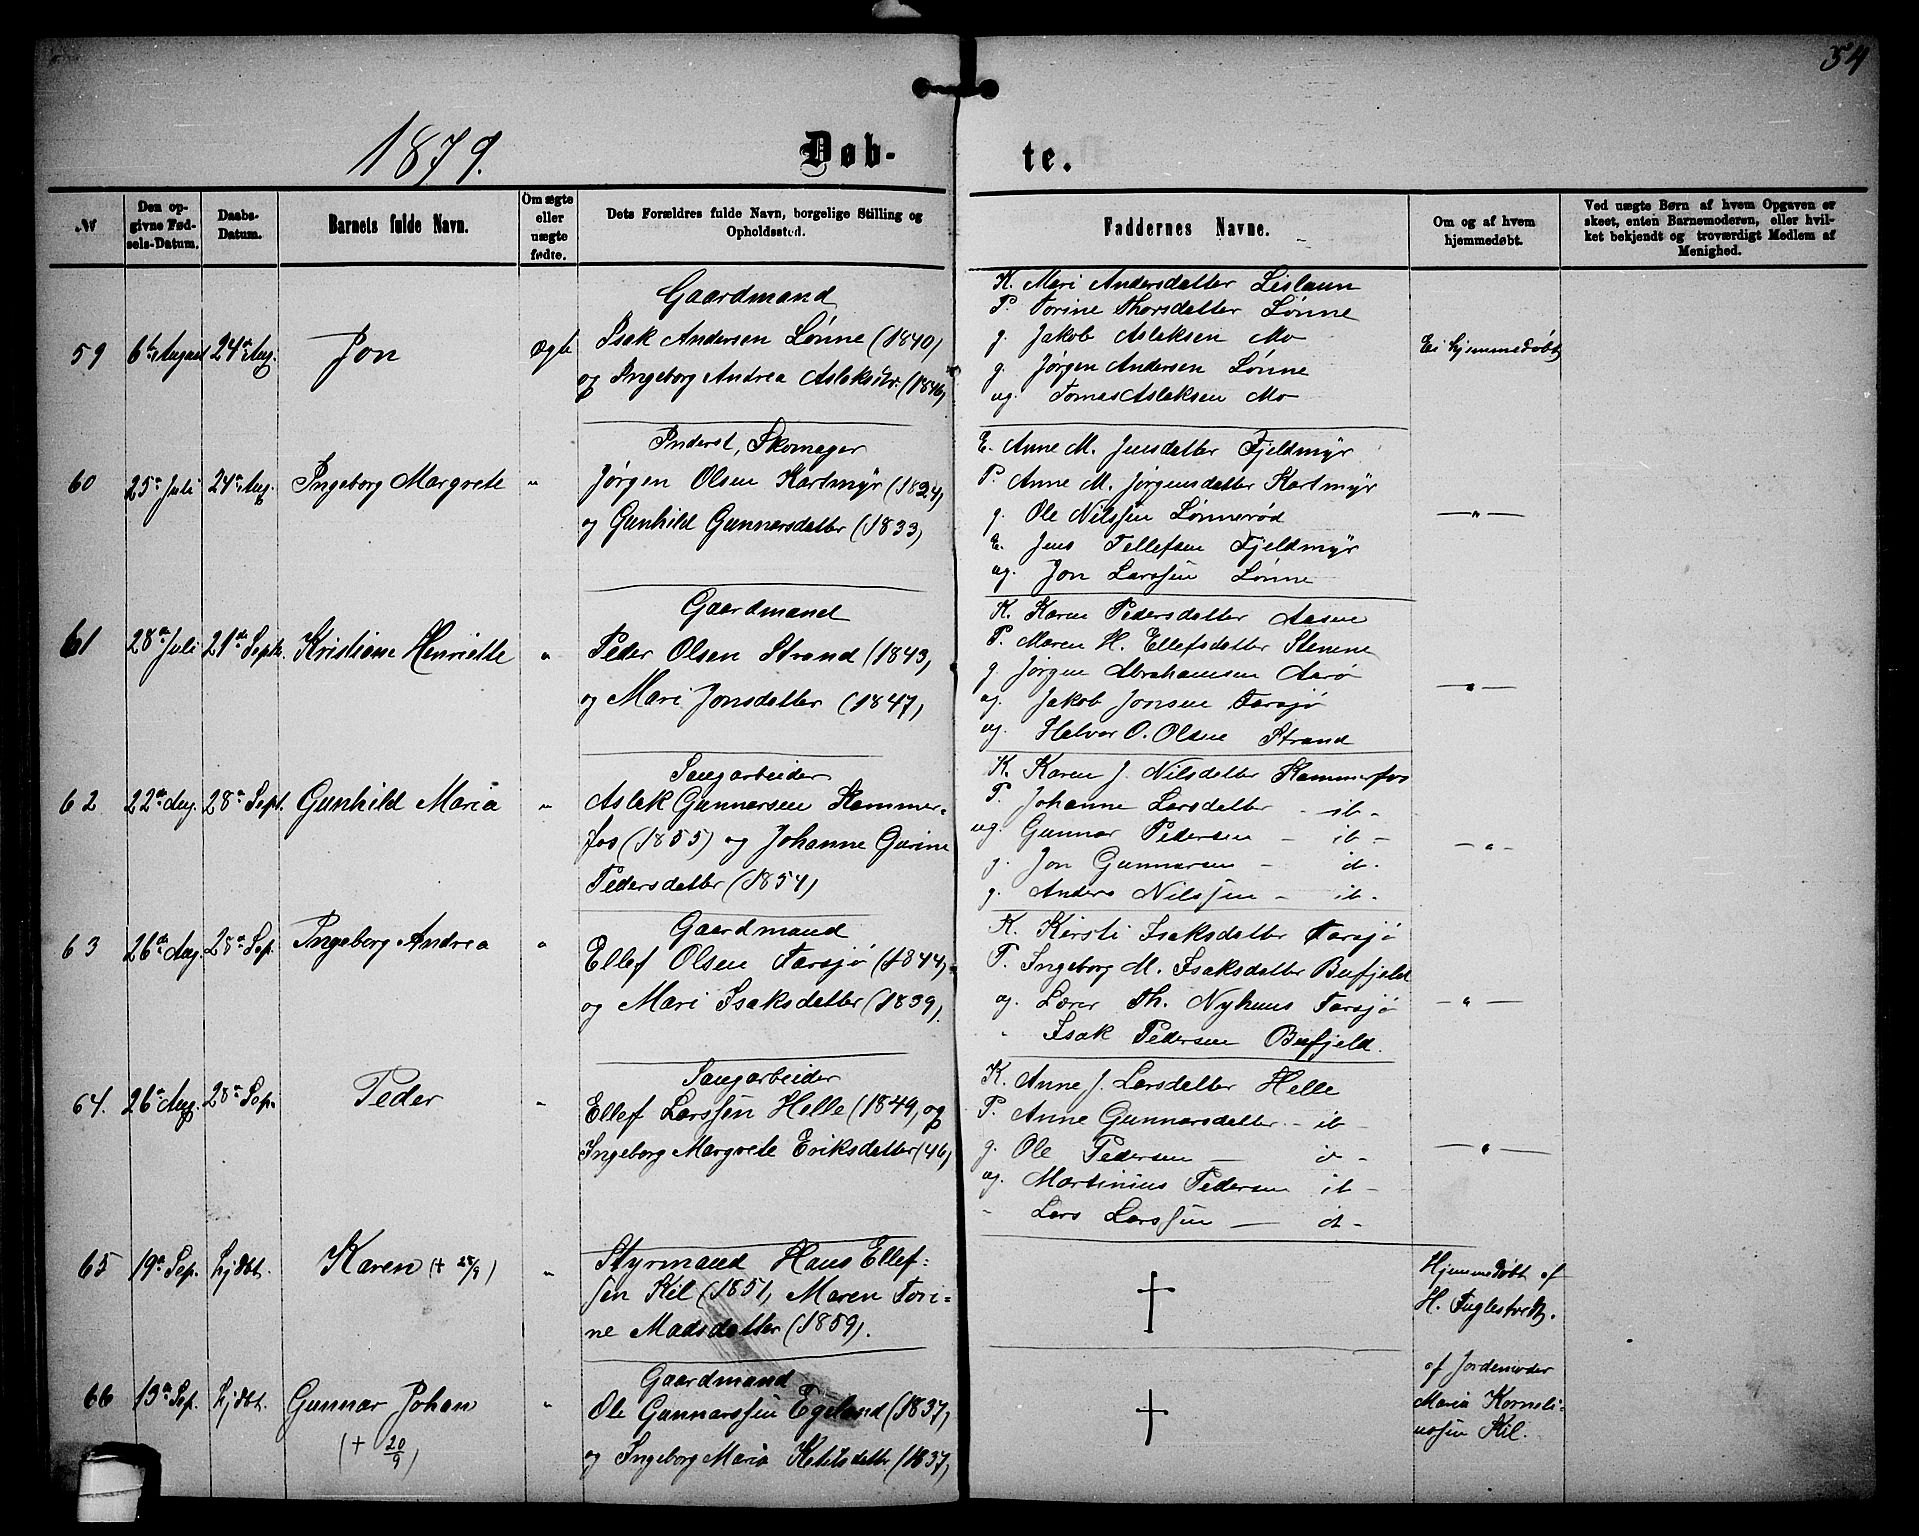 54
1879.
Døb-
te.
№
Den op-
givne Fød-
sels-Datum.
Daabs-
Datum.
Barnets fulde Navn.
Om ægte
eller
uægte
fødte.
Dets Forældres fulde Navn, borgelige Stilling og
Opholdssted.
Faddernes Navne.
Om og af hvem
hjemmedøbt.
Ved uægte Børn af hvem Opgaven er
skeet, enten Barnemoderen, eller hvil-
ket bekjendt og troværdigt Medlem af
Menighed.
59 6te August 24de Aug. Jon Ægte
Gaardmand
Isak Andersen Lønne (1840)
og Ingeborg Andrea Aslaksdtr. (1846)
K. Mari Andersdatter Lislaun
P. Torine Thorsdatter Lønne
g. Jakob Aslaksen Mo
g. Jørgen Andersen Lønne
ug. Tomas Aslaksen Mo
Ei hjemmedøbt
60 25de Juli 24de Aug. Ingeborg Margrete "
Inderst, Skomager
Jørgen Olsen Kartmyr (1824)
og Gunhild Gunnarsdatter (1833)
E. Anne M. Jensdatter Fjeldmyr
P. Anne M. Jørgensdatter Kartmyr
g. Ole Nilssen Lønnerød
E. Jens Tellefsen Fjeldmyr
ug. Jon Larssen Lønne
— " —
61 28de Juli 21de Septb. Kristiane Henriette "
Gaardmand
Peder Olsen Strand (1843)
og Mari Jonsdatter (1847)
K. Karen Pedersdatter Aasen
P. Maren H. Ellefsdatter Stenene
g. Jørgen Abrahamsen Aarø
ug. Jakob Jonsen Farsjø
ug. Halvor O. Olsen Strand
— " —
62 22de Aug. 28de Sept. Gunhild Maria "
Saugarbeider
Aslak Gunnarsen Kammer-
fos (1855) og Johanne Gurine
Pedersdatter (1854)
K. Karen J. Nilsdatter Kammerfos
P. Johanne Larsdatter - ib -
ug. Gunnar Pedersen — ib -
g. Jon Gunnarsen — ib.
g. Anders Nilssen — ib -
— " —
63 26de Aug. 28de Sep. Ingeborg Andrea "
Gaardmand
Ellef Olsen Farsjø (1844)
og Mari Isaksdatter (1839).
K. Kirsti Isaksdatter Farsjø
P. Ingeborg M. Isaksdatter Bufjeld
ug. Lærer Th. Nyhuus Farsjø
" Isak Pedersen Bufjeld.
— " —
64. 26de Aug. 28de Sep. Peder "
Saugarbeider
Ellef Larssen Helle (1849) og
Ingeborg Margrete Eriksdatter (46)
K. Anne J. Larsdatter Helle
P. Anne Gunnarsdatter - ib -
g. Ole Pedersen — ib -
ug. Martinius Pedersen ib -
" Lars Larssen — ib -
— " —
65 19de Sep. hjdbt. Karen (+ 28/9) "
Styrmand Hans Ellef-
sen Kil (1851) Maren Tori-
ne Madsdatter (1859).
†
Hjemmedøbt af
H. Fuglestvedt.
66 13de Sep. hjdbt. Gunnar Johan "
(+ 20/9)
Gaardmand
Ole Gunnarssen Egeland (1837)
og Ingeborg Maria Ketilsdatter (1837)
†
af Jordemoder
Maria Korneli-
ussen Kil.